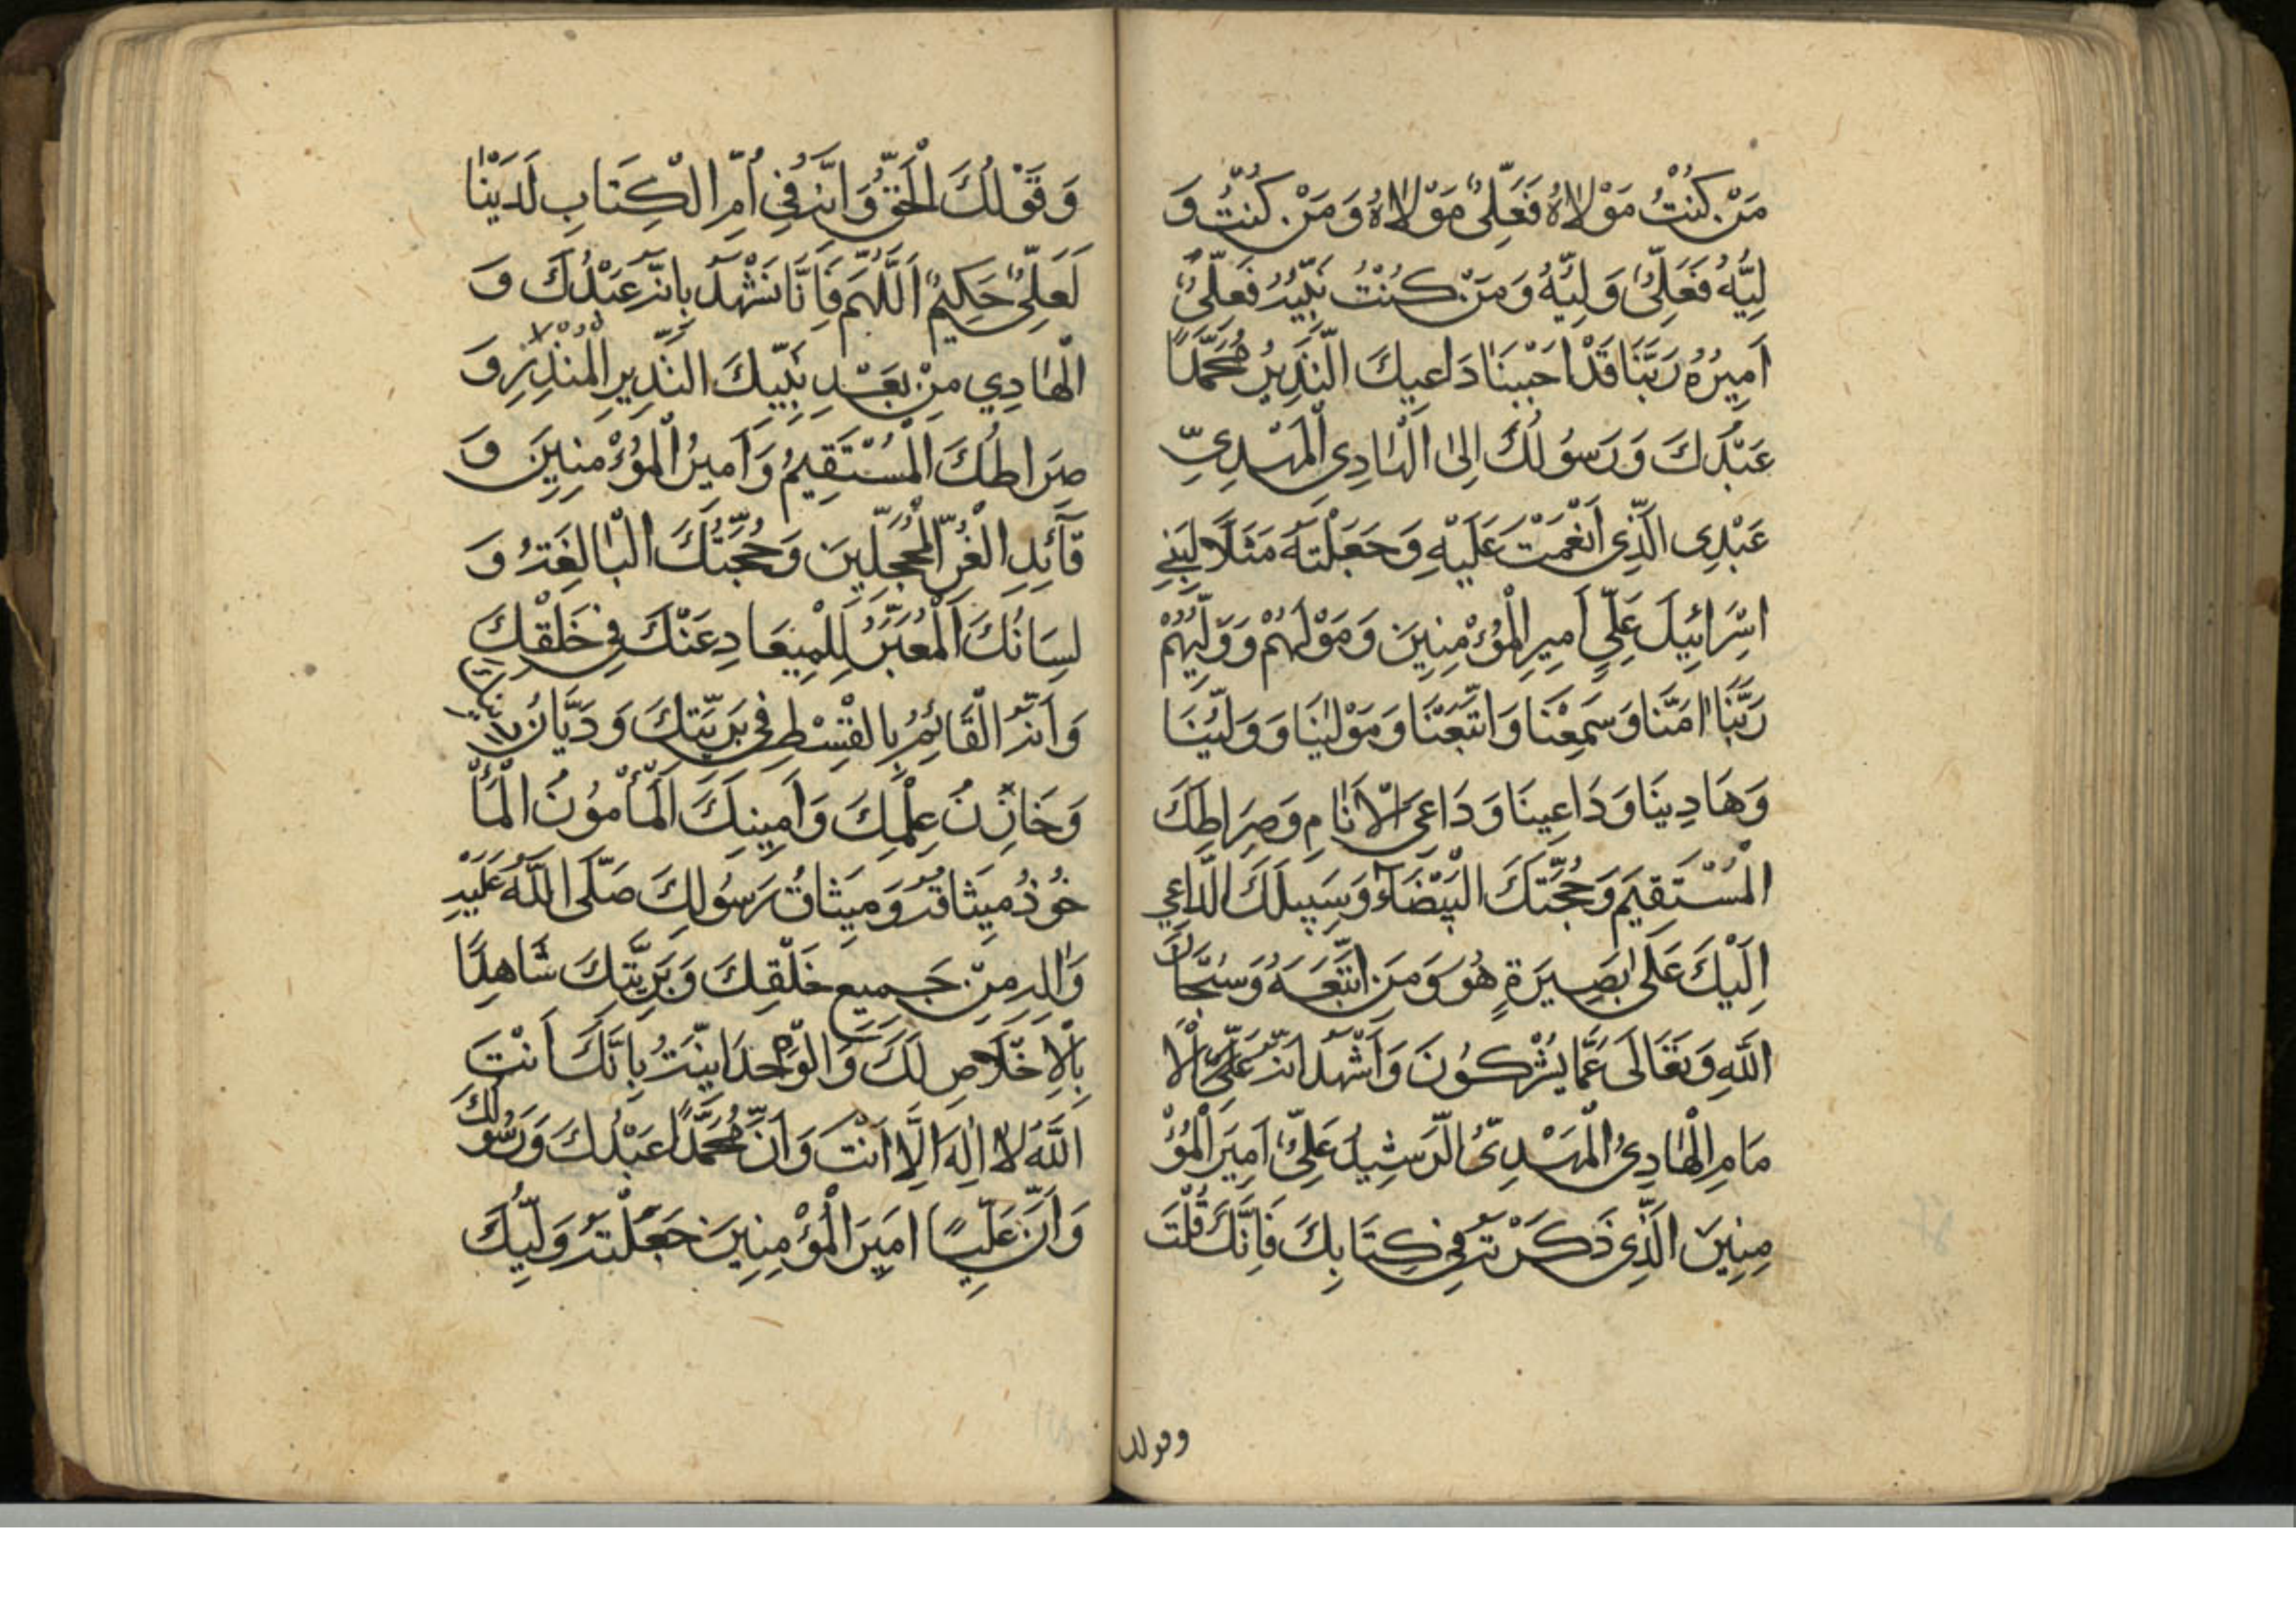 مَنْ كُنْتُ مَوْلاهُ فَعَلِيٌّ مَوْلاهُ وَمَنْ كُنْتُ وَ
لِيُّهُ فَعَلِيٌّ وَلِيُّهُ وَمَنْ كُنْتُ نَبِيُّهُ فَعَلِيٌّ
اَمِيرُهُ رَبَّنَا قَدْ اَجَبْنَا دَاعِيكَ النَّذِيرُ مُحَمَّدًا
عَبْدَكَ وَرَسُولَكَ اِلىَ الْهَادِي الْمَهْدِيِّ
عَبْدِى الَّذِى اَنْعَمْتَ عَلَيْهِ وَجَعَلْتَهُ مَثَلًا لِبَنِي
اِسْرَائِيلَ عَلِيٍّ اَمِيرِ الْمُؤْمِنِينَ وَمَوْلَهُمْ وَوَلِيُّهُمْ
رَبَّنَا امَنَّا وَسَمِعْنَا وَاتَّبَعْنَا وَمَوْلَينَا وَوَلِيُّنَا
وَهَادِينَا وَدَاعِينَا وَدَاعِيَ الْاَنَامِ وَصِرَاطِكَ
الْمُسْتَقِيمَ وَحُجَّتَكَ الْبَيْضَآءَ وَسَبِيلَكَ الدَّاعِي
اِلَيْكَ عَلَى بَصِيرَةٍ هُوَ وَمَنِ اتَّبَعَهُ وَسُبْحَانَ
اللّٰهِ وَتَعَالَى عَمَّا يُشْرِكُونَ وَاَشْهَدُ اَنَّهُ عَلِيٌّ الْاِ
مَامِ الْهَادِيُ الْمَهْدِىُّ الرَّشِيدُ عَلِيٌّ اَمِيرَ الْمُؤْ
مِنِينَ الَّذِى ذَكَرْتَهُ فِي كِتَابِكَ فَاِنَّكَ قُلْتَ
وقولك
وَقَوْلُكَ الْحَقُّ وَاِنَّهُ فِي اُمِّ الْكِتَابِ لَدَيْنَا
لَعَلِيٌّ حَكِيمٌ اَللّٰهُمَّ فَاِنَّا نَشْهَدُ بِاَنَّهُ عَبْدُكَ وَ
الْهَادِي مِنْ بَعْدِ نَبِيِّكَ النَّذِيرِ الْمُنْذِرِ وَ
صِرَاطُكَ الْمُسْتَقِيمُ وَاَمِيرُ الْمُؤْمِنِينَ وَ
قَآئِدِ الْغُرِّ الْمُحَجَّلِينَ وَحُجَّتُكَ الْبَالِغَةُ وَ
لِسَانُكَ الْمُعَبِّرُ لِلْمِيعَادِ عَنْكَ فِي خَلْقِكَ
وَاَنَّهُ الْقَائِمُ بِالْقِسْطِ فِي بَرِيَّتِكَ وَدَيَّانُ دِينِكَ
وَخَازِنُ عِلْمِكَ وَاَمِينِكَ الْمَأْمُونُ الْمَأْ
خُوذُ مِيثَاقُهُ وَمِيثَاقُ رَسُولِكَ صَلَّى اللّٰهُ عَلَيْهِ
وَاٰلِهِ مِنْ جَمِيعِ خَلْقِكَ وَبَرِيَّتِكَ شَاهِدًا
بِالْاِخْلَاصِ لَكَ وَالْوَحْدَانِيَّةُ بِاَنَّكَ اَنْتَ
اللّٰهُ لَا اِلٰهَ اِلَّا اَنْتَ وَاَنَّ مُحَمَّدًا عَبْدُكَ وَرَسُولُكَ
وَاَنَّ عَلِيًّا اَمِيرَ الْمُؤْمِنِينَ جَعَلْتَهُ وَلِيُّكَ